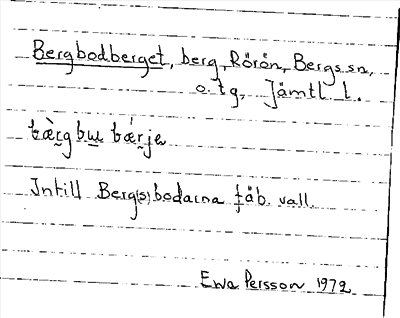 Bergbodberget, berg, Rörön, Bergs sn,
o. tg, Jämtl. l.
bæ̀rgbɯ bǽrjə
Intill Berg(s)bodarna fäb. vall.
Ewa Persson 1972